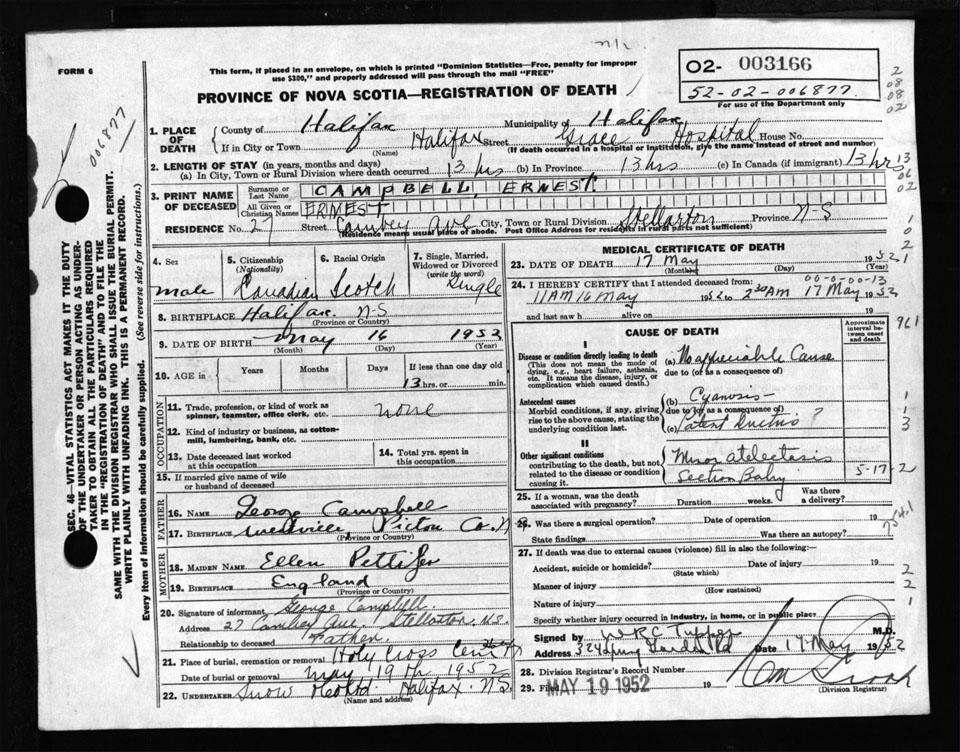 FORM 6
This form, if placed in an envelope, on which is printed "Dominion Statistics—Free, penalty for improper
use $300," and properly addressed will pass through the mail "FREE"
O2- 003166
52-02-006877
For use of the Department only
PROVINCE OF NOVA SCOTIA—REGISTRATION OF DEATH
006877
1. PLACE OF DEATH
County of Halifax Municipality of Halifax
If in City or Town Halifax (Name) Street Grace Hospital House No.
(If death occurred in a hospital or institution, give the name instead of street and number)
2. LENGTH OF STAY (in years, months and days)
(a) In City, Town or Rural Division where death occurred 13 hrs (b) In Province 13 hrs (c) In Canada (if immigrant) 13 hr
3. PRINT NAME OF DECEASED
Surname or Last Name CAMPBELL, ERNEST
All Given or Christian Names ERNEST
RESIDENCE No. 27 Street Avenue City, Town or Rural Division Stellarton Province N-S
(Residence means usual place of abode. Post Office Address for residents in rural parts not sufficient)
4. Sex male
5. Citizenship (Nationality) Canadian
6. Racial Origin Scotch
7. Single, Married, Widowed or Divorced (write the word) Single
8. BIRTHPLACE Halifax N-S
(Province or Country)
9. DATE OF BIRTH May 16 1952
(Month) (Day) (Year)
10. AGE in Years Months Days If less than one day old
13 hrs. or min.
OCCUPATION
11. Trade, profession, or kind of work as spinner, teamster, office clerk, etc. none
12. Kind of industry or business, as cotton-mill, lumbering, bank, etc.
13. Date deceased last worked at this occupation
14. Total yrs. spent in this occupation
15. If married give name of wife or husband of deceased
FATHER
16. NAME George Campbell
17. BIRTHPLACE Westville Pictou Co. N
(Province or Country)
MOTHER
18. MAIDEN NAME Ellen Pettifer
19. BIRTHPLACE England
(Province or Country)
20. Signature of informant George Campbell
Address 27 Ave. Stellarton, N.S.
Relationship to deceased Father
21. Place of burial, cremation or removal Holy Cross
Date of burial or removal May 19th 1952
22. UNDERTAKER Snow Halifax. N.S.
(Name and address)
MEDICAL CERTIFICATE OF DEATH
23. DATE OF DEATH 17 May 1952
(Month) (Day) (Year)
24. I HEREBY CERTIFY that I attended deceased from: 00-0-00-13
11 AM 16 May 1952 to 2 30 AM 17 May 1952
and last saw h alive on 19
CAUSE OF DEATH
Approximate interval between onset and death
I
Disease or condition directly leading to death
(This does not mean the mode of dying, e.g., heart failure, asthenia, etc. It means the disease, injury, or complication which caused death.)
(a) No appreciable Cause
due to (or as a consequence of)
Antecedent causes
Morbid conditions, if any, giving rise to the above cause, stating the underlying condition last.
(b) Cyanosis
due to (or as a consequence of)
(c) Patent Ductus ?
II
Other significant conditions
contributing to the death, but not related to the disease or condition causing it.
Minor atelectasis
Section Baby
5-17-2
25. If a woman, was the death associated with pregnancy? Duration weeks. Was there a delivery?
26. Was there a surgical operation? Date of operation 19
State findings Was there an autopsy?
27. If death was due to external causes (violence) fill in also the following:—
Accident, suicide or homicide? Date of injury 19
(State which)
Manner of injury
(How sustained)
Nature of injury
Specify whether injury occurred in industry, in home, or in public place
Signed by WRC Tupper M.D.
Address 324 Spring Garden Rd Date 17 May 1952
28. Division Registrar's Record Number
29. Filed MAY 19 1952 19
(Division Registrar)
SEC. 46—VITAL STATISTICS ACT MAKES IT THE DUTY
OF THE UNDERTAKER OR PERSON ACTING AS UNDER-
TAKER TO OBTAIN ALL THE PARTICULARS REQUIRED
IN THE "REGISTRATION OF DEATH" AND TO FILE THE
SAME WITH THE DIVISION REGISTRAR WHO SHALL ISSUE THE BURIAL PERMIT.
WRITE PLAINLY WITH UNFADING INK. THIS IS A PERMANENT RECORD.
Every item of information should be carefully supplied. (See reverse side for instructions.)
2
08
08
02
13
06
02
1
0
2
1
961
1
1
3
2
2
1